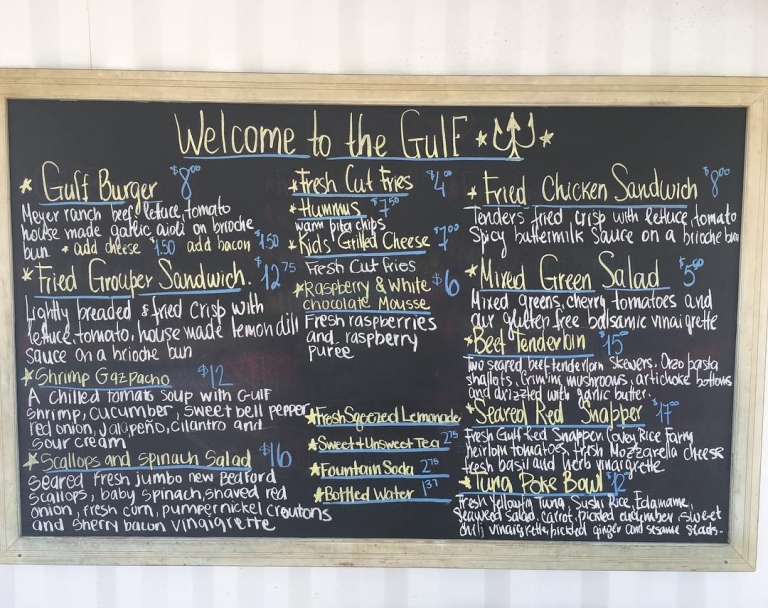 Welcome to the Gulf
Gulf Burger $8.00
Meyer ranch beef, lettuce, tomato
house made garlic aioli on brioche
bun. * add cheese $1.50 add bacon $1.50
Fried Grouper Sandwich. $12.75
Lightly breaded & fried crisp with
lettuce, tomato, house made lemon dill
sauce on a brioche bun
Shrimp Gazpacho $12
A chilled tomato soup with Gulf
shrimp, cucumber, sweet bell pepper,
red onion, jalapeño, cilantro and
sour cream
Scallops and Spinach Salad $16
Seared fresh jumbo new Bedford
scallops, baby spinach, shaved red
onion, fresh corn, pumpernickel croutons
and sherry bacon vinaigrette
Fresh Cut Fries $4.00
Hummus $7.50
warm pita chips
Kids Grilled Cheese $7.00
Fresh Cut Fries
Raspberry & White $6
chocolate Mousse
Fresh raspberries
and raspberry
puree
Fresh Sqeezed Lemonade
Sweet + Unsweet Tea 2.75
Fountain Soda 2.75
Bottled Water
Fried Chicken Sandwich $8.00
Tenders fried crisp with lettuce, tomato
Spicy buttermilk Sauce on a brioche bun
Mixed Green Salad $5.00
Mixed greens, cherry tomatoes and
our gluten free balsamic vinaigrette
Beef Tenderloin $15
Two seared beef tenderloin skewers. Orzo pasta
shallots, Crimini mushrooms, artichoke bottoms
and drizzled with garlic butter.
Seared Red Snapper $17.00
Fresh Gulf Red Snapper. Rice Farm
heirloom tomatoes, fresh Mozzarella cheese
fresh basil and herb vinaigrette
Tuna Poke Bowl $12
Fresh Yellowfin Tuna, Sushi Rice, Edamame,
Seaweed Salad, carrot, pickled cucumber, sweet
chili vinaigrette, pickled ginger and sesame seeds.